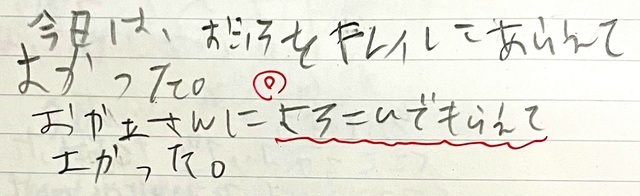 今日は、おふろをキレイしてあらえて
よかった。
おかあさんによろこんでもらえて
よかった。